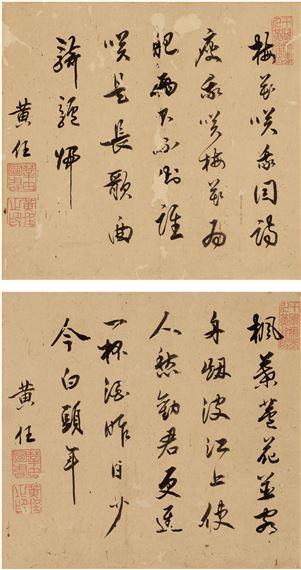 梅花咲我因詩
瘦我咲梅花為
肥兩不知誰
咲是長歌
驢歸
黃任
楓葉蘆花並客
舟烟波江上使
人愁勸君更進
一杯酒昨日少
今白頭年
黃任